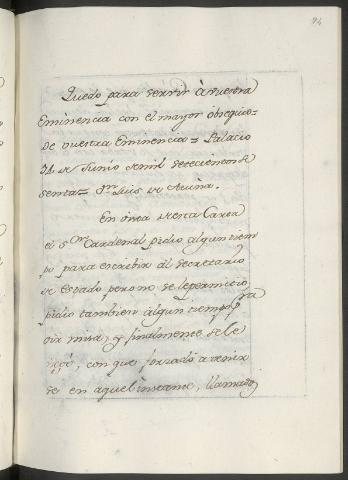 94
Quedo para servir à vuestra
Eminencia con el mayor obsequio=
de vuestra Eminencia= Palacio
de Junio de mil setecientos se
senta= Dn. Luis de Acuña.
En de esta Carta
el Sor. Cardenal pidio algun tiem
po para escribir al Secretario
de Estado pero no se le permitio,
pidio tambien algun tiempo pra
oir misa, y finalmente se le
negò, con que forzado a venir
se en aquel instante, llamado